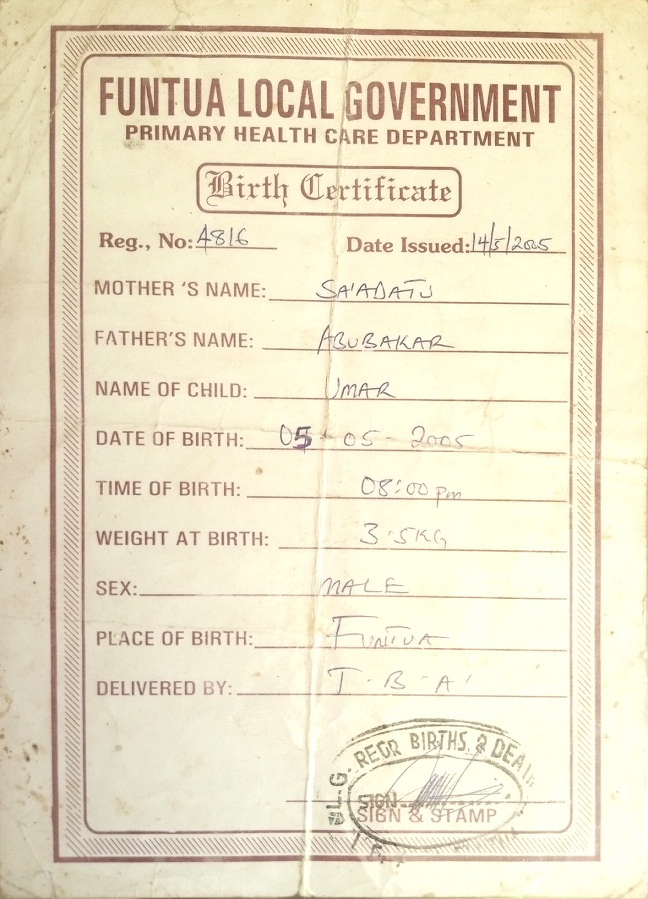 FUNTUA LOCAL GOVERNMENT
PRIMARY HEALTH CARE DEPARTMENT
Birth Certificate
Reg., No: 4816 Date Issued: 14/5/2005
MOTHER 'S NAME: SA'ADATU
FATHER'S NAME: ABUBAKAR
NAME OF CHILD: UMAR
DATE OF BIRTH: 05-05-2005
TIME OF BIRTH: 08:00 pm
WEIGHT AT BIRTH: 3.5KG
SEX: MALE
PLACE OF BIRTH: FUNTUA
DELIVERED BY: T-B-A
REGR BIRTHS &
SIGN
SIGN & STAMP